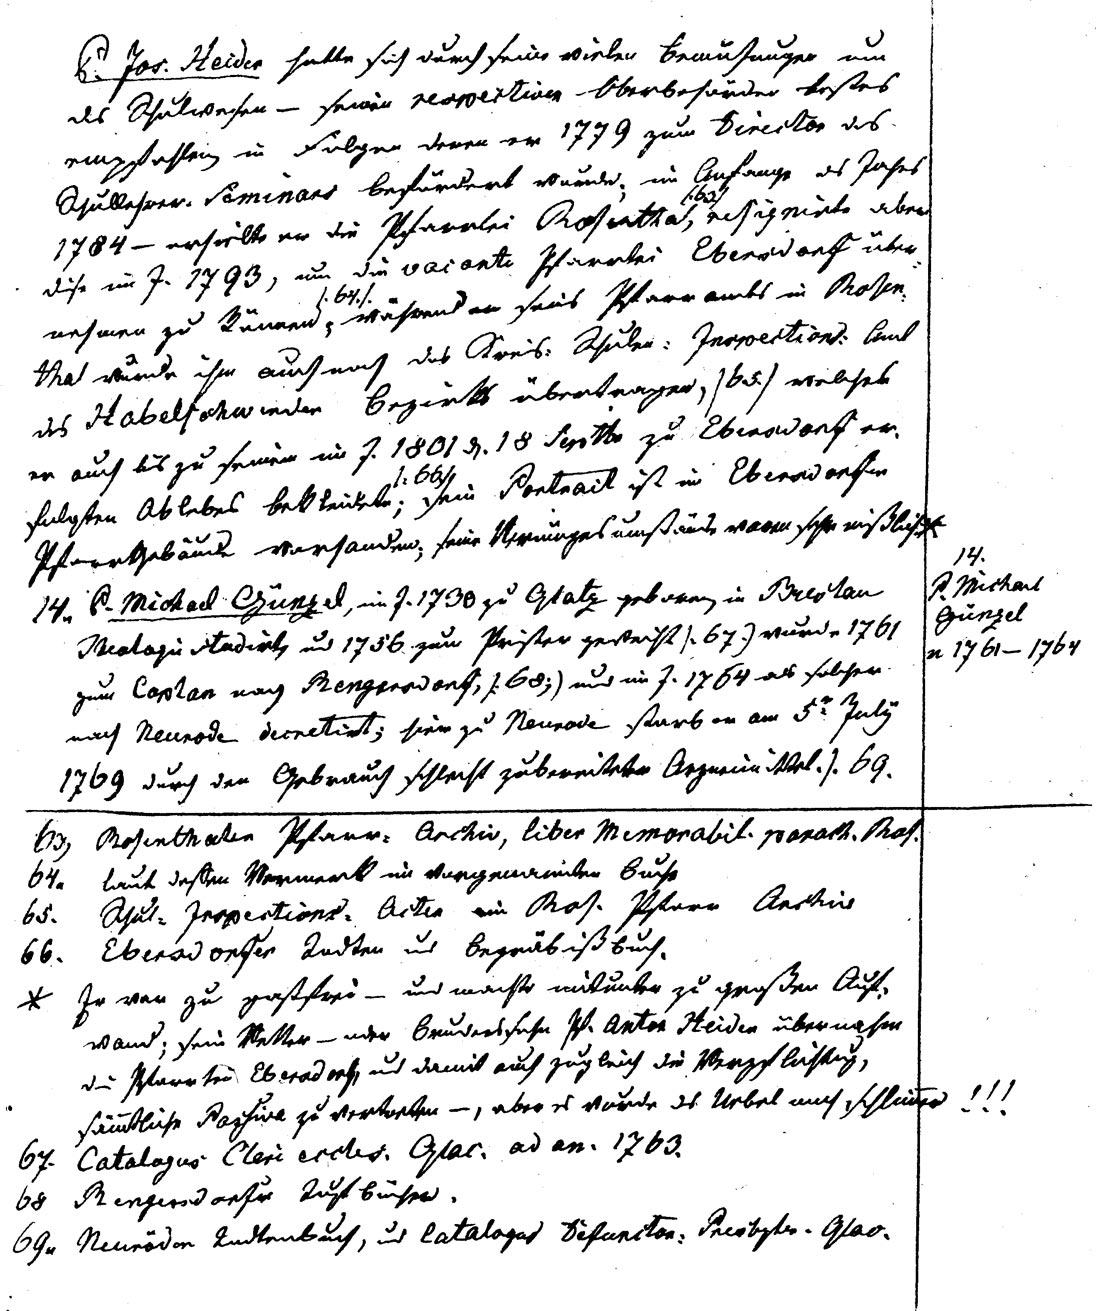 P. Jos. Heider hatte sich durch seine vielen Bemühungen um
das Schulwesen – seinen respectiven Oberbehörden bestens
empfohlen, in Folgen deren er 1779 zum Director des
Schullehrer-Seminars befördert wurde; im Anfange des Jahres
1784 – erhielte er die Pfarrtei Rosenthal, (:63) resignirte aber
diese im J. 1793, um die vacante Pfarrtei Ebersdorf über-
nehmen zu können; (:64:) während er seines Pfarramts in Rosen-
thal wurde ihm auch noch das Kreis-Schulen-Inspections-Amt
des Habelschwerder Bezirks übertragen, (65:) welches
er auch bis zu seinem im J. 1801 d. 18 Septbr zu Ebersdorf er-
folgten Ablebes bekleidete; (:66) sein Portrait ist im Ebersdorfer
Pfarrgebäude vorhanden; seine Vermögensumstände waren sehr mißlich *
14. P. Michael Günzel, im J. 1730 zu Glatz geboren, in Breslau
Theologie studirt, und 1756 zum Priester geweiht (:67:) wurde 1761
zum Caplan nach Rengersdorf, (:68:) und im J. 1764 als solcher
nach Neurode decretirt; hier zu Neurode starb er am 5n July
1769 durch den Gebrauch schlecht zubereiteter Arzneimittel. ). 69.
14.
P. Michael
Günzel
v. 1761 – 1764
63, Rosenthaler Pfarr-Archiv, liber Memorabil. paroch. Ros.
64. laut dessen Vermerk im vorgenannten Buche
65. Schul-Inspections-Acten im Ros. Pfarr Archiv
66. Ebersdorfer Todten und Begräbnißbuch.
* Er war zu gastfrei – und machte mitunter zu großen Auf-
wand; sein Vetter – oder Bruderssohn Pf. Anton Heider übernahm
die Pfarrtei Ebersdorf, und damit auch zugleich die Verpflichtung,
sämmtliche Passiva zu vertreten –, aber es wurde das Uebel noch schlimmer !!!
67. Catalogus Cleri eccles. Glac. ad an. 1763.
68 Rengersdorfer Taufbücher.
69. Neuroder Todtenbuch, und Catalogus Defunctor. Presbyter. Glac.